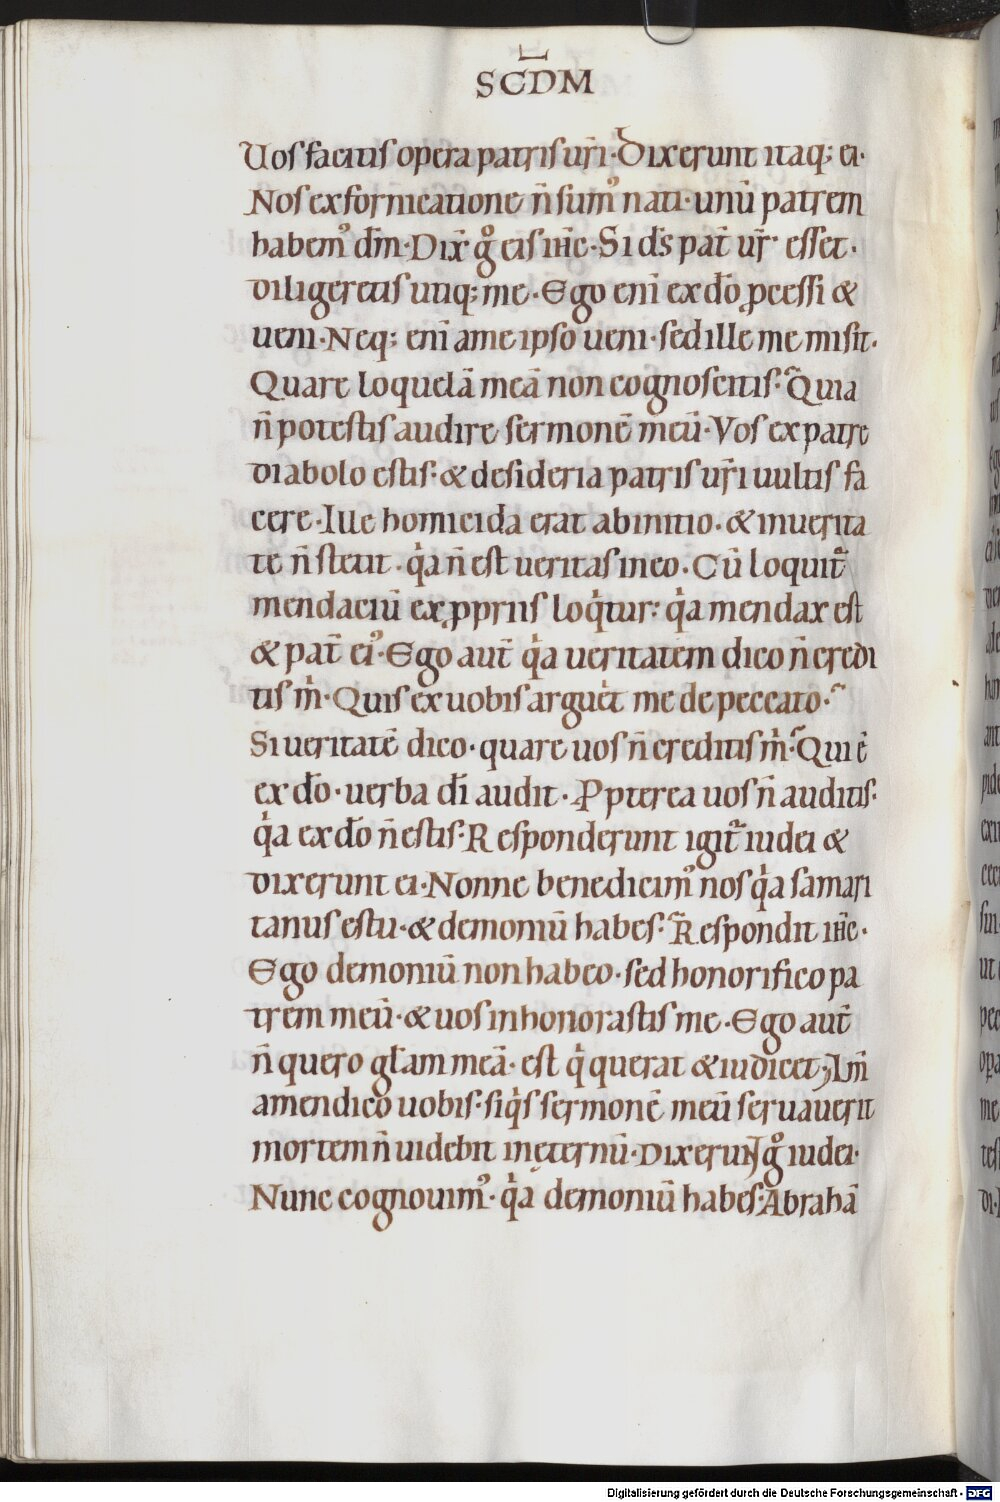 L
SC̄DM
Uos facitis opera patris ur̄i·Dixerunt itaq; ei·
Nos ex fornicatione n̄ sum᾽ nati·unū patrem
habem᾽ dm̄·Dix̄ gͦ eis ih̄c·Si ds̄ pat̄ ur̄ esset·
diligeretis utiq; me·Ego eni̅ ex dō ꝓcessi &
ueni·Neq; eni̅ a me ipso ueni·sed ille me misit·
Quare loquelā meā non cognoscitis·̃Quia
n̄ potestis audire sermonē meū·Vos ex patre
diabolo estis·& desideria patris ur̄i uultis fa
cere·Ille homicida erat ab initio·& in uerita
te n̄ stetit·qͥa n̄ est ueritas in eo·Cū loquit᷑
mendaciū ex ꝓpriis loqͥtur: qͥa mendax est
& pat̄ ei᾽·Ego aut̄ qͥa ueritatem dico n̄ credi
tis m̊·Quis ex uobis arguet me de peccato·̃
Si ueritatē dico·quare uos n̄ creditis m̊·̃Qui ē
ex dō·uerba dī audit·Ꝓpterea uos n̄ auditis·
qͥa ex dō n̄ estis·Responderunt igit᷑ iudei &
dixerunt ei·Nonne benedicim᾽ nos qͥa samari
tanus es tu·& demoniū habes·̃Respondit ih̄c·
Ego demoniū non habeo·sed honorifico pa
trem meū·& uos inhonorastis me·Ego aut̄
n̄ quero glā̄m meā·est qͥ querat & iudicet; Am̄
amen dico uobis·siqͥs sermonē meū seruauerit
mortem n̄ uidebit in eternū·Dixerunt gͦ iudei·
Nunc cognouim᾽·qͥa demoniū habes·Abrahā
Digitalisierung gefördert durch die Deutsche Forschungsgemeinschaft - DFG